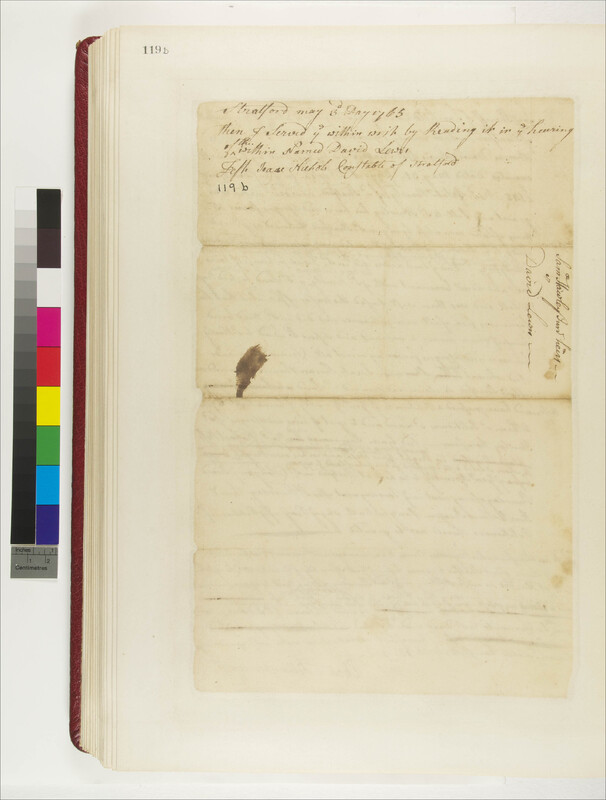 119b
Stratford may Day 1765
then I Served ye within writ by Reading it in ye hearing
of the within Named David Lewis
Test Isaac Constable of Stratford
119 b
David Lewis
Inches
Centimetres